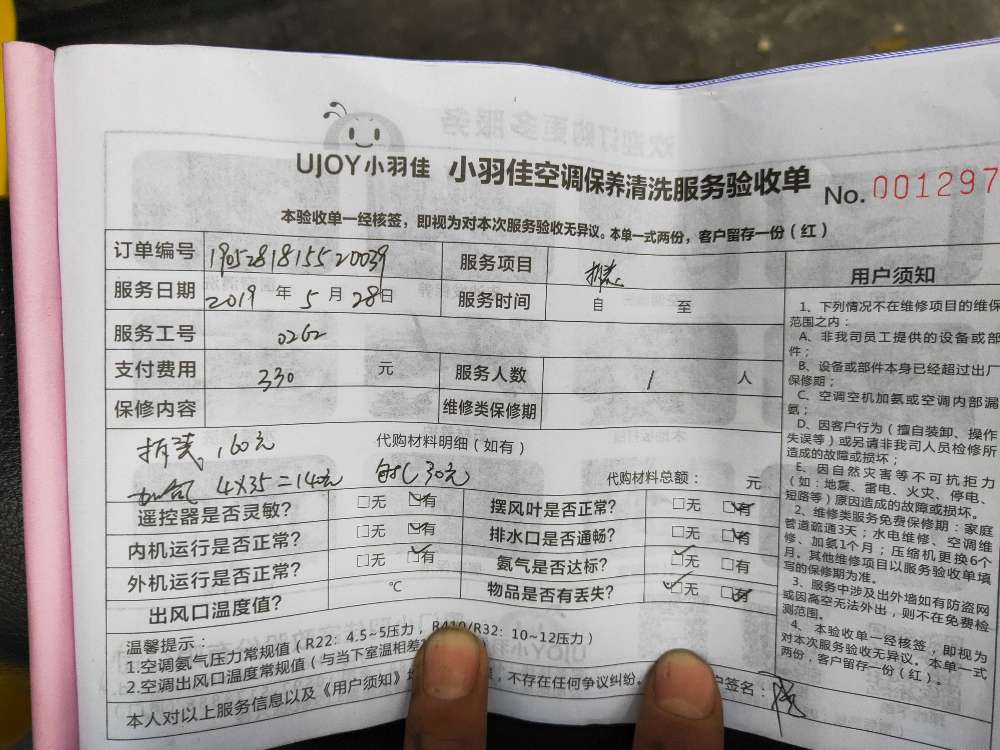 UJOY小羽佳 小羽佳空调保养清洗服务验收单 No. 001297
本验收单一经核签，即视为对本次服务验收无异议。本单一式两份，客户留存一份（红）
订单编号 1905281815520039 服务项目 拆装
服务日期 2019 年 5 月 28 日 服务时间 自 至
服务工号 0262
支付费用 330 元 服务人数 1 人
保修内容 维修类保修期
拆装 160元 代购材料明细（如有）
4X35=140元 30元 代购材料总额： 元
遥控器是否灵敏？ □无 □有 摆风叶是否正常？ □无 □有
内机运行是否正常？ □无 □有 排水口是否通畅？ □无 □有
外机运行是否正常？ □无 □有 氨气是否达标？ □无 □有
出风口温度值？ ℃ 物品是否有丢失？ □无 □有
温馨提示：
1.空调氨气压力常规值（R22：4.5~5压力，R410/R32：10~12压力）
2.空调出风口温度常规值（与当下室温相差
本人对以上服务信息以及《用户须知》 ，不存在任何争议纠纷。 户签名：
用户须知
1、下列情况不在维修项目的维保
范围之内：
A、非我司员工提供的设备或部
件；
B、设备或部件本身已经超过出厂
保修期；
C、空调空机加氨或空调内部漏
氨；
D、因客户行为（擅自装卸、操作
失误等）或另请非我司人员检修所
造成的故障或损坏；
E、因自然灾害等不可抗拒力
（如：地震、雷电、火灾、停电、
短路等）原因造成的故障或损坏。
2、维修类服务免费保修期：家庭
管道疏通3天；水电维修、空调维
修、加氨1个月；压缩机更换6个
月。其他维修项目以服务验收单填
写的保修期为准。
3、服务中涉及出外墙如有防盗网
或因高空无法外出，则不在免费检
测范围。
4、本验收单一经核签，即视为
对本次服务验收无异议。本单一式
两份，客户留存一份（红）。